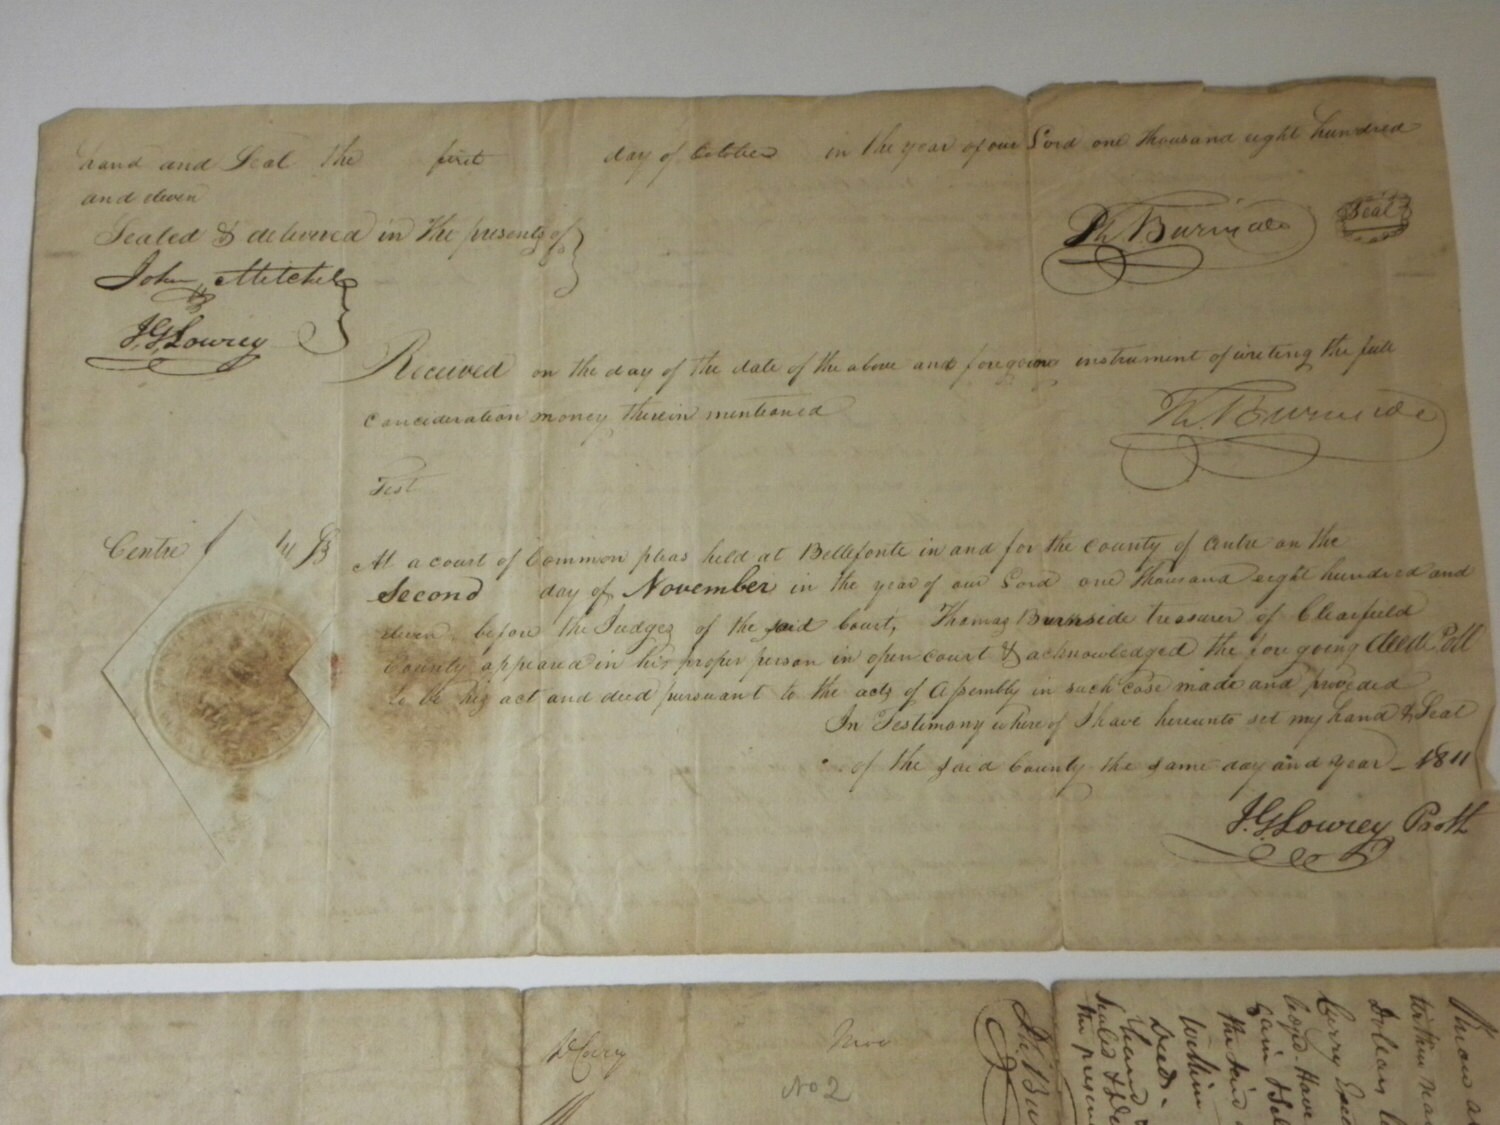 hand and Seal the first day of October in the year of our Lord one thousand eight hundred
and eleven
Sealed & delivered in the presents of
Th. Burnside Seal
John Mitchel
J. G. Lowrey
Received on the day of the date of the above and foregoing instrument of writing the full
Concideration money therein mentioned
Th. Burnside
Test
Centre
At a court of Common pleas held at Bellefonte in and for the County of Centre on the
Second day of November in the year of our Lord one thousand eight hundred and
eleven before the Judges of the said Court, Thomas Burnside tresurer of Clearfield
County appeared in his proper person in open court & acknowledged the fore going deed Poll
to be his act and deed pursuant to the acts of Assembly in such case made and provided
In Testimony where of I have hereunto set my hand & Seal
of the said County the same day and year 1811
J. G. Lowrey Proth
McCurry
No 2
Th. Bu
Sealed & De
the presen
hand
Deed.
Within
the said
gain & Sel
Have
Curry
Dollars
Know a